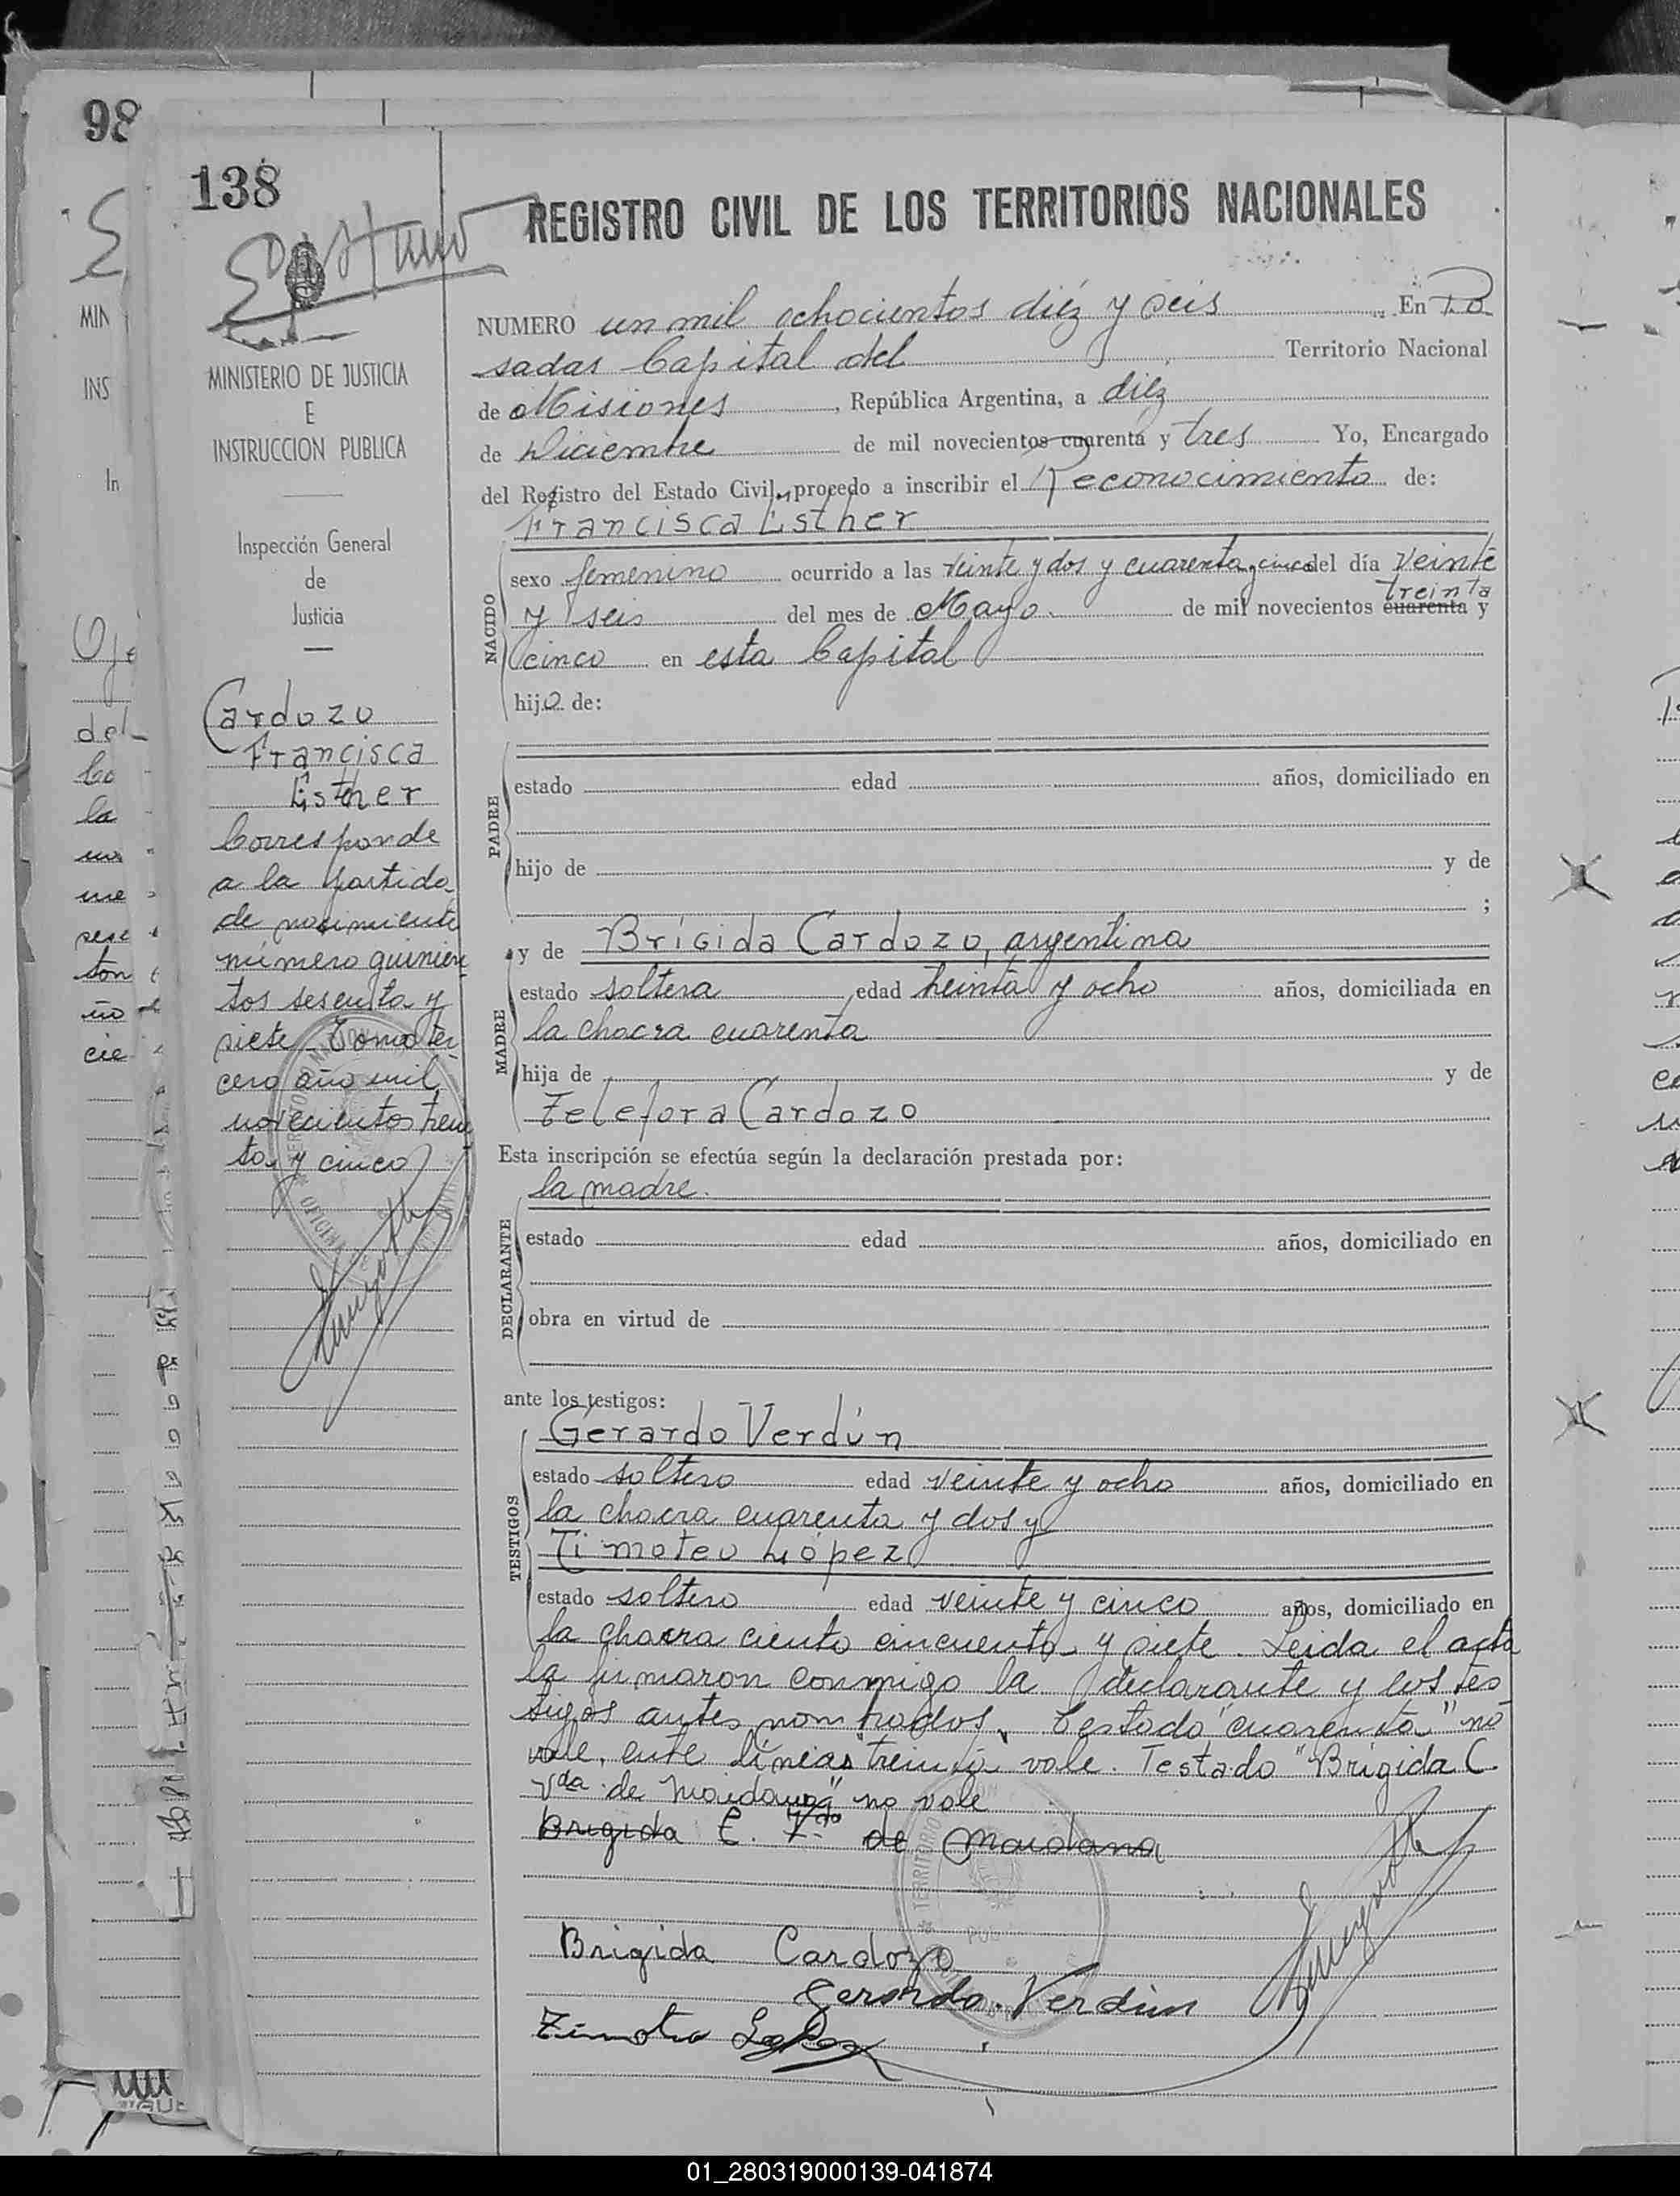 98
138
REGISTRO CIVIL DE LOS TERRITORIOS NACIONALES
MINISTERIO DE JUSTICIA
E
INSTRUCCION PUBLICA
Inspección General
de
Justicia
Cardozo
Francisca
Esther
Corresponde
a la partida
de nacimiento
número quinien
tos sesenta y
siete Tomo ter
cero año mil
novecientos trein
ta y cinco
NUMERO un mil ochocientos diéz y seis En Po
sadas Capital del Territorio Nacional
de Misiones, República Argentina, a diéz
de Diciembre de mil novecientos cuarenta y tres Yo, Encargado
del Registro del Estado Civil, procedo a inscribir el Reconocimiento de:
Francisca Esther
NACIDO
sexo femenino ocurrido a las veinte y dos y cuarenta y cinco del día veinte
treinta
y seis del mes de Mayo de mil novecientos cuarenta y
cinco en esta Capital
hijo de:
PADRE
estado edad años, domiciliado en
hijo de y de
;
MADRE
y de Brígida Cardozo, argentina
estado soltera edad treinta y ocho años, domiciliada en
la chacra cuarenta
hija de y de
Telefora Cardozo
Esta inscripción se efectúa según la declaración prestada por:
la madre.
DECLARANTE
estado edad años, domiciliado en
obra en virtud de
ante los testigos:
TESTIGOS
Gerardo Verdún
estado soltero edad veinte y ocho años, domiciliado en
la chacra cuarenta y dos y
Timoteo López
estado soltero edad veinte y cinco años, domiciliado en
la chacra ciento cincuenta y siete. Leida el acta
la firmaron conmigo la declarante y los tes
tigos antes nombrados. Testado "cuarenta" no
vale, entre líneas treinta vale. Testado "Brigida C.
Vda. de Maidana" no vale
Brigida C. Vda de Maidana
Brigida Cardozo
Gerardo Verdún
Timoteo Lopez
01_280319000139-041874